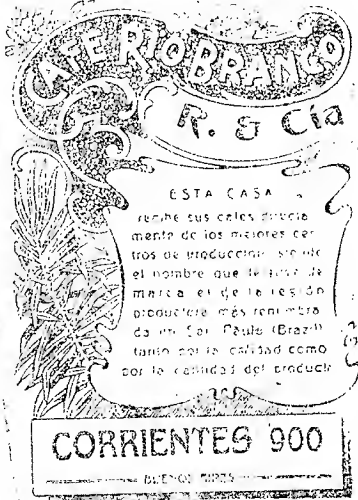 CAFE RIO BRANCO
R. & Cía
ESTA CASA
recibe sus cafes directa
mente de los mejores cen
tros de produccion siendo
el nombre que le sirve de
marca el de la región
productora más renombra
da en San Paulo (Brazil)
tanto por la calidad como
por la cantidad del producto
CORRIENTES 900
BUENOS AIRES